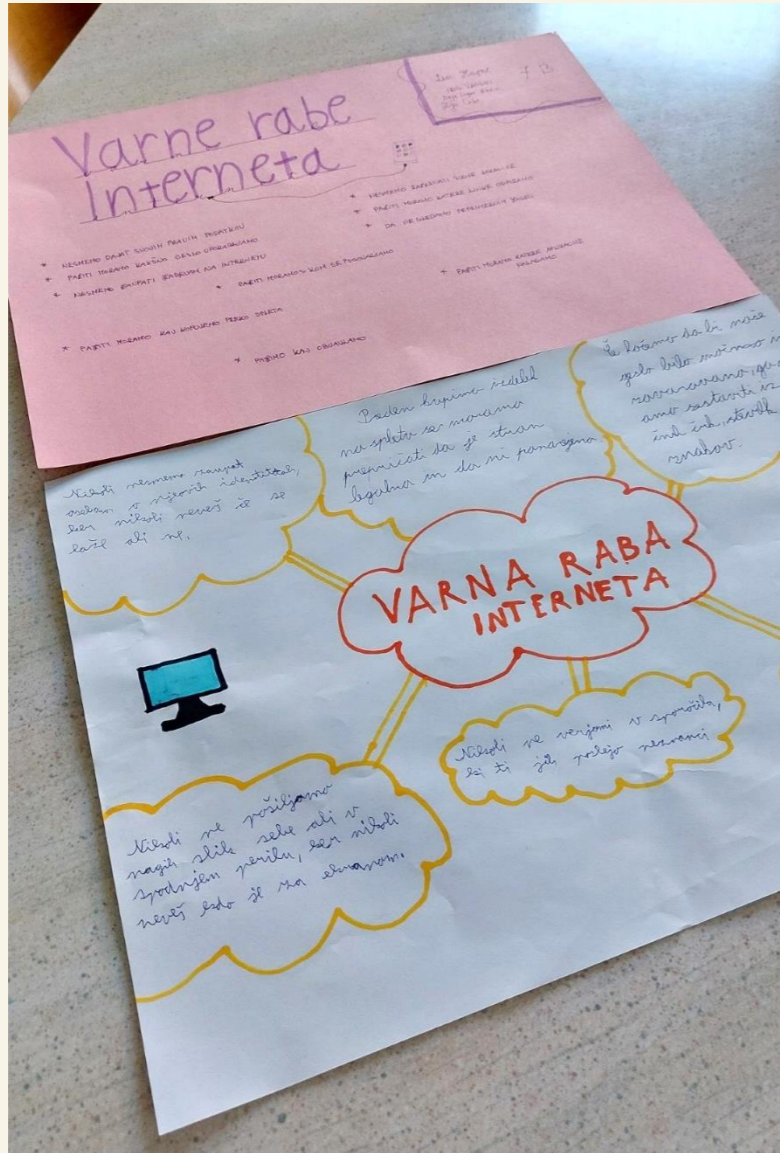 Varne rabe
Interneta
7 B
* NESMEMO DAJAT SVOJIH PRAVIH PODATKOV
* PAZITI MORAMO KAKŠNO GESLO UPORABLJAMO
* NESMEMO ZAUPATI LJUDEM NA INTERNETU
* PAZITI MORAMO S KOM SE POGOVARJAMO
* PAZITI MORAMO KAJ KUPUJEMO PREKO SPLETA
* PAZIMO KAJ OBJAVLJAMO
* NESMEMO SVOJE LOKACIJE
* PAZITI MORAMO KATERE LINKE ODPIRAMO
* DA NE GREMO
* PAZITI MORAMO KATERE APLIKACIJE
NALAGAMO
Nikoli nesmemo zaupat
osebam o njihovih identitetah,
ker nikoli neveš če se
laže ali ne.
Preden kupimo izdelek
na spletu se moramo
prepričati da je stran
legalna in da ni ponarejena.
Če hočemo da bi naše
geslo bilo močno
zavarovano, ga
amo sestaviti iz
črk, številk
znakov.
VARNA RABA
INTERNETA
Nikoli ne verjami v sporočila,
ki ti jih pošljejo neznanci
Nikoli ne pošiljamo
nagih slik sebe ali v
spodnjem perilu, ker nikoli
neveš kdo je za ekranom.